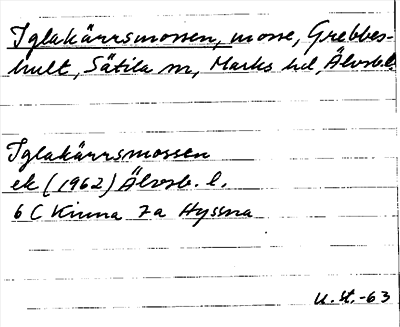 Iglakärrsmossen, mosse, Grebbes-
hult, Sätila sn, Marks hd, Älvsb. l.
Iglakärrsmossen
ek (1962) Älvsb. l.
6 C Kinna 7a Hyssna
U. St. -63